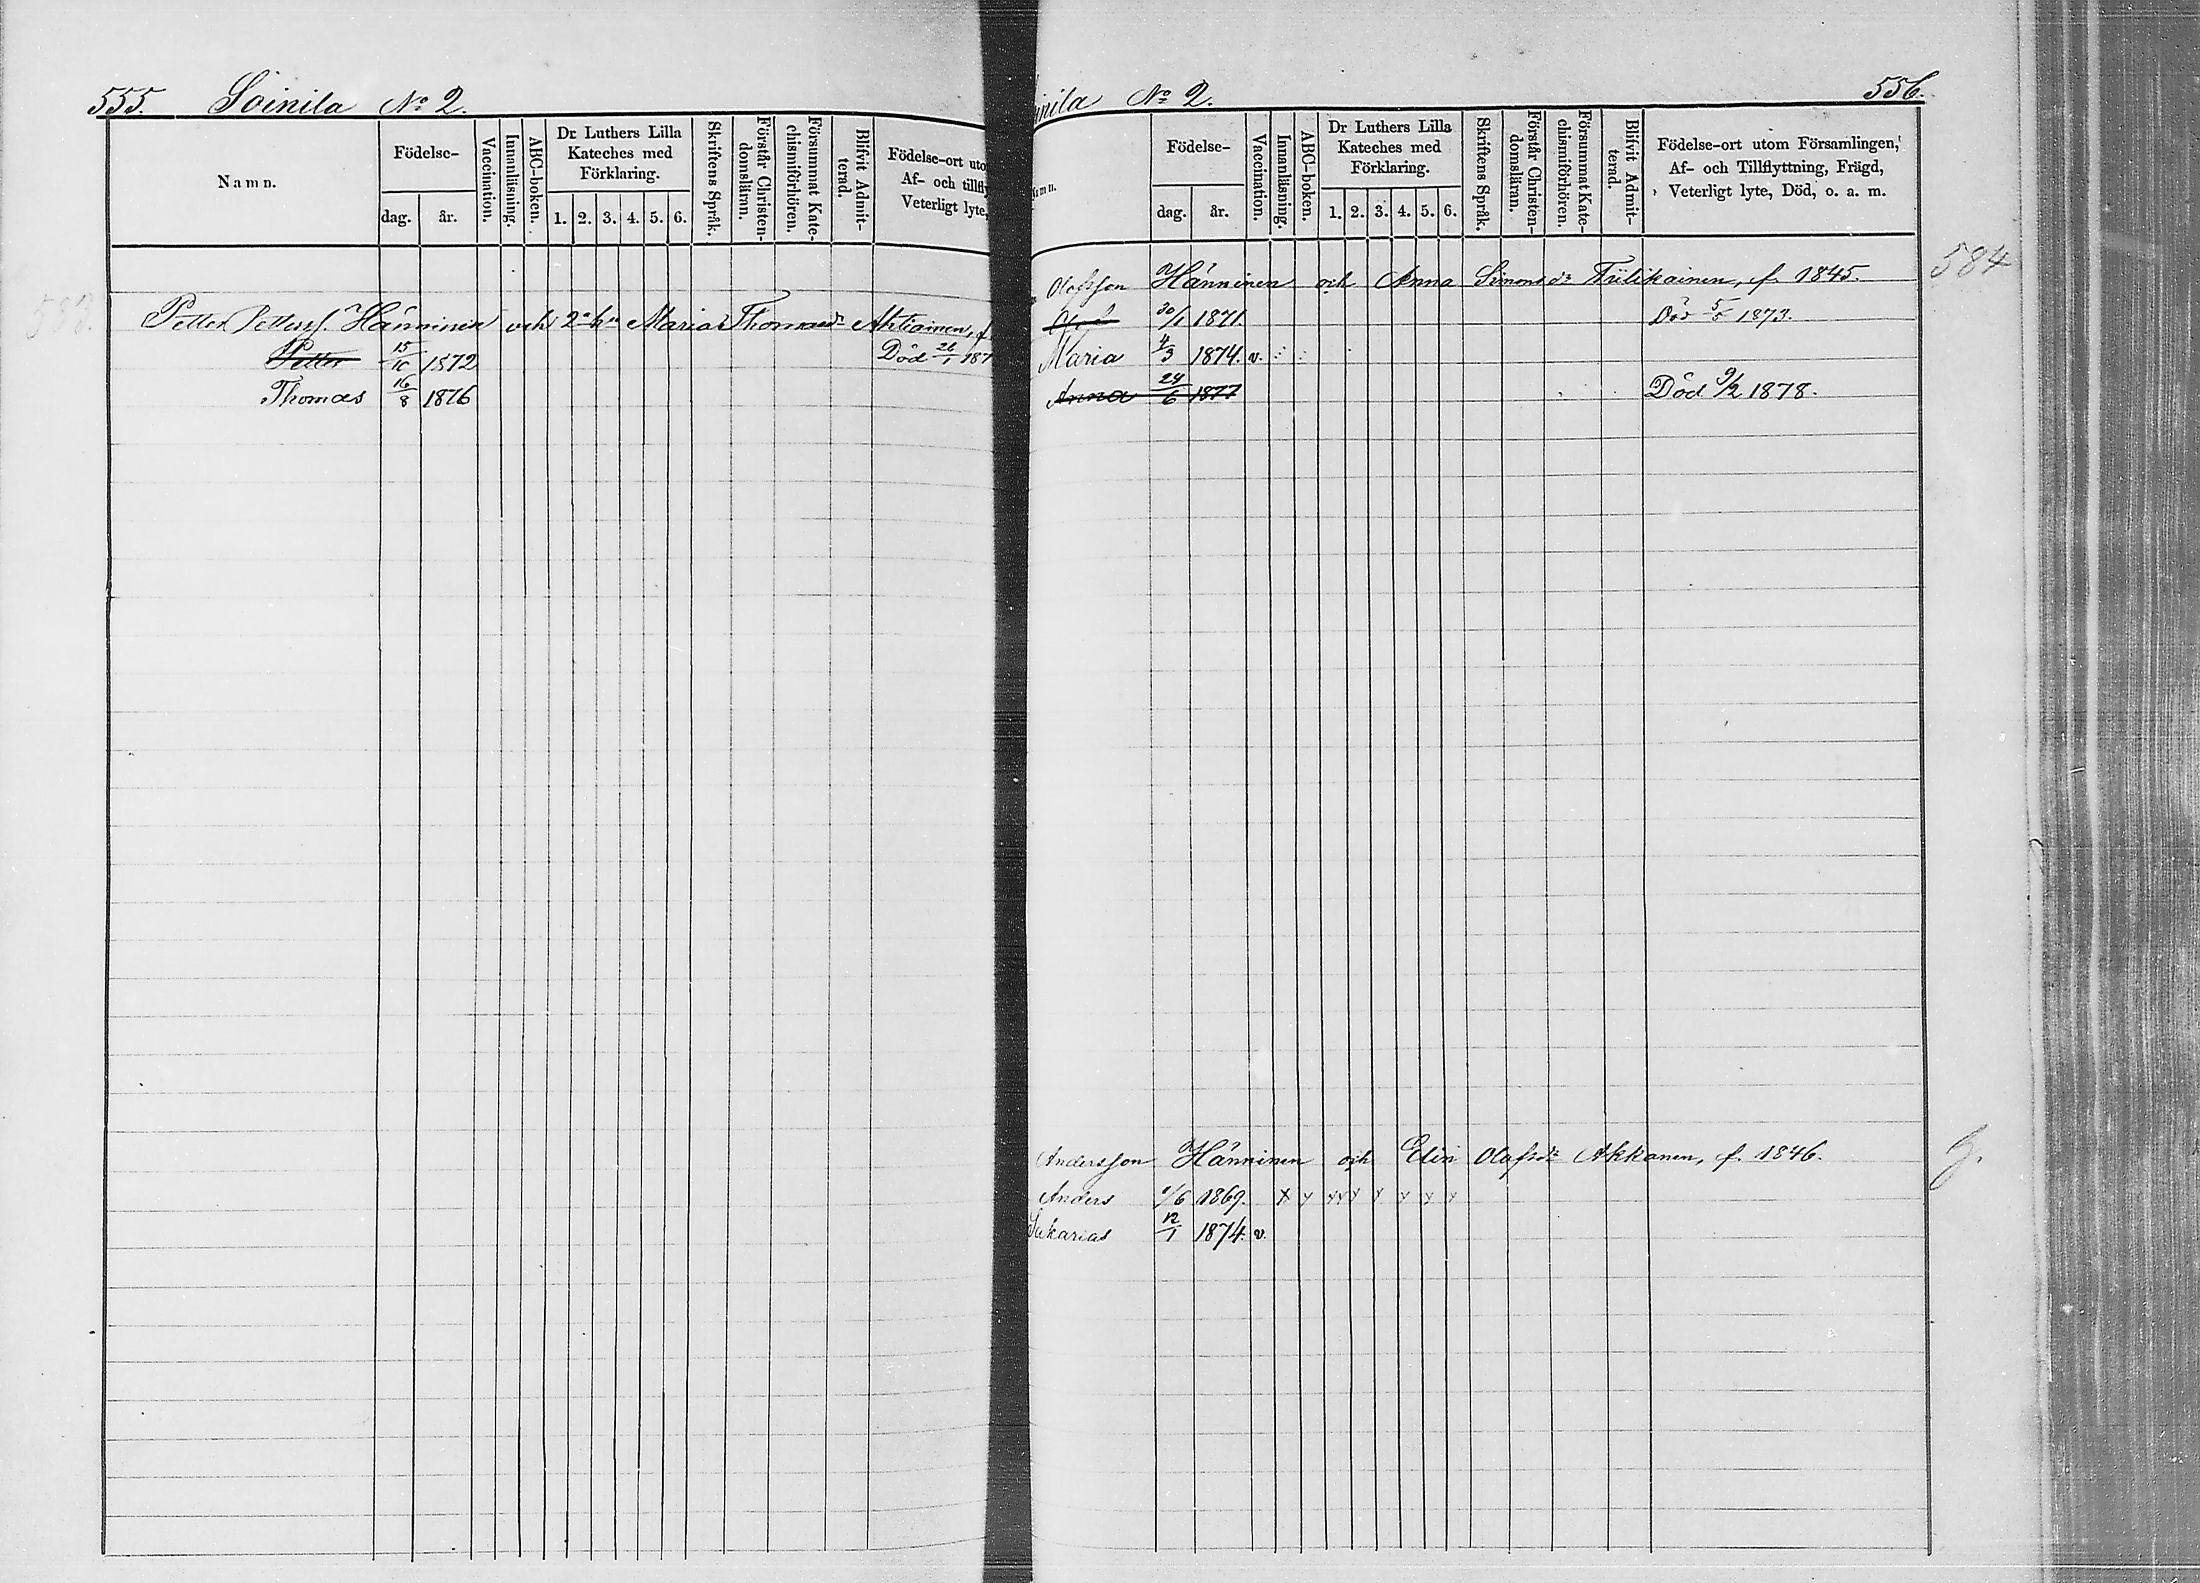 555. Soinila No 2.
Namn.
Födelse-
dag. år.
Vaccination.
Innanläsning.
ABC-boken.
Dr Luthers Lilla
Kateches med
Förklaring.
1. 2. 3. 4. 5. 6.
Skriftens Språk.
Förstår Christen-
domsläran.
Försummat Kate-
chismiförhören.
Blifvit Admit-
terad.
Födelse-ort uto
Af- och tillfl
Veterligt lyte,
Petter Petterss. Hänninen och 2a h:u Maria Thomasdr Ahtiainen, f
Petter 15/10 1872 Död 26/1 187
Thomas 16/8 1876
inila No 2. 556.
amn.
Födelse-
dag. år.
Vaccination.
Innanläsning.
ABC-boken.
Dr Luthers Lilla
Kateches med
Förklaring.
1. 2. 3. 4. 5. 6.
Skriftens Språk.
Förstår Christen-
domsläran.
Försummat Kate-
chismiförhören.
Blifvit Admit-
terad.
Födelse-ort utom Församlingen,
Af- och Tillflyttning, Frägd,
Veterligt lyte, Död, o. a. m.
Olofsson Hänninen och Anna Simonsdr Tiilikainen, f. 1845. 584
Olof 30/1 1871. Död 5/5 1873.
Maria 4/3 1874. v.
Anna 24/6 1877 Död 9/2 1878.
Andersson Hänninen och Elin Olofsdr Akkanen, f. 1846.
Anders /6 1869. x y y y y y y y y
Sakarias 12/1 1874. v.